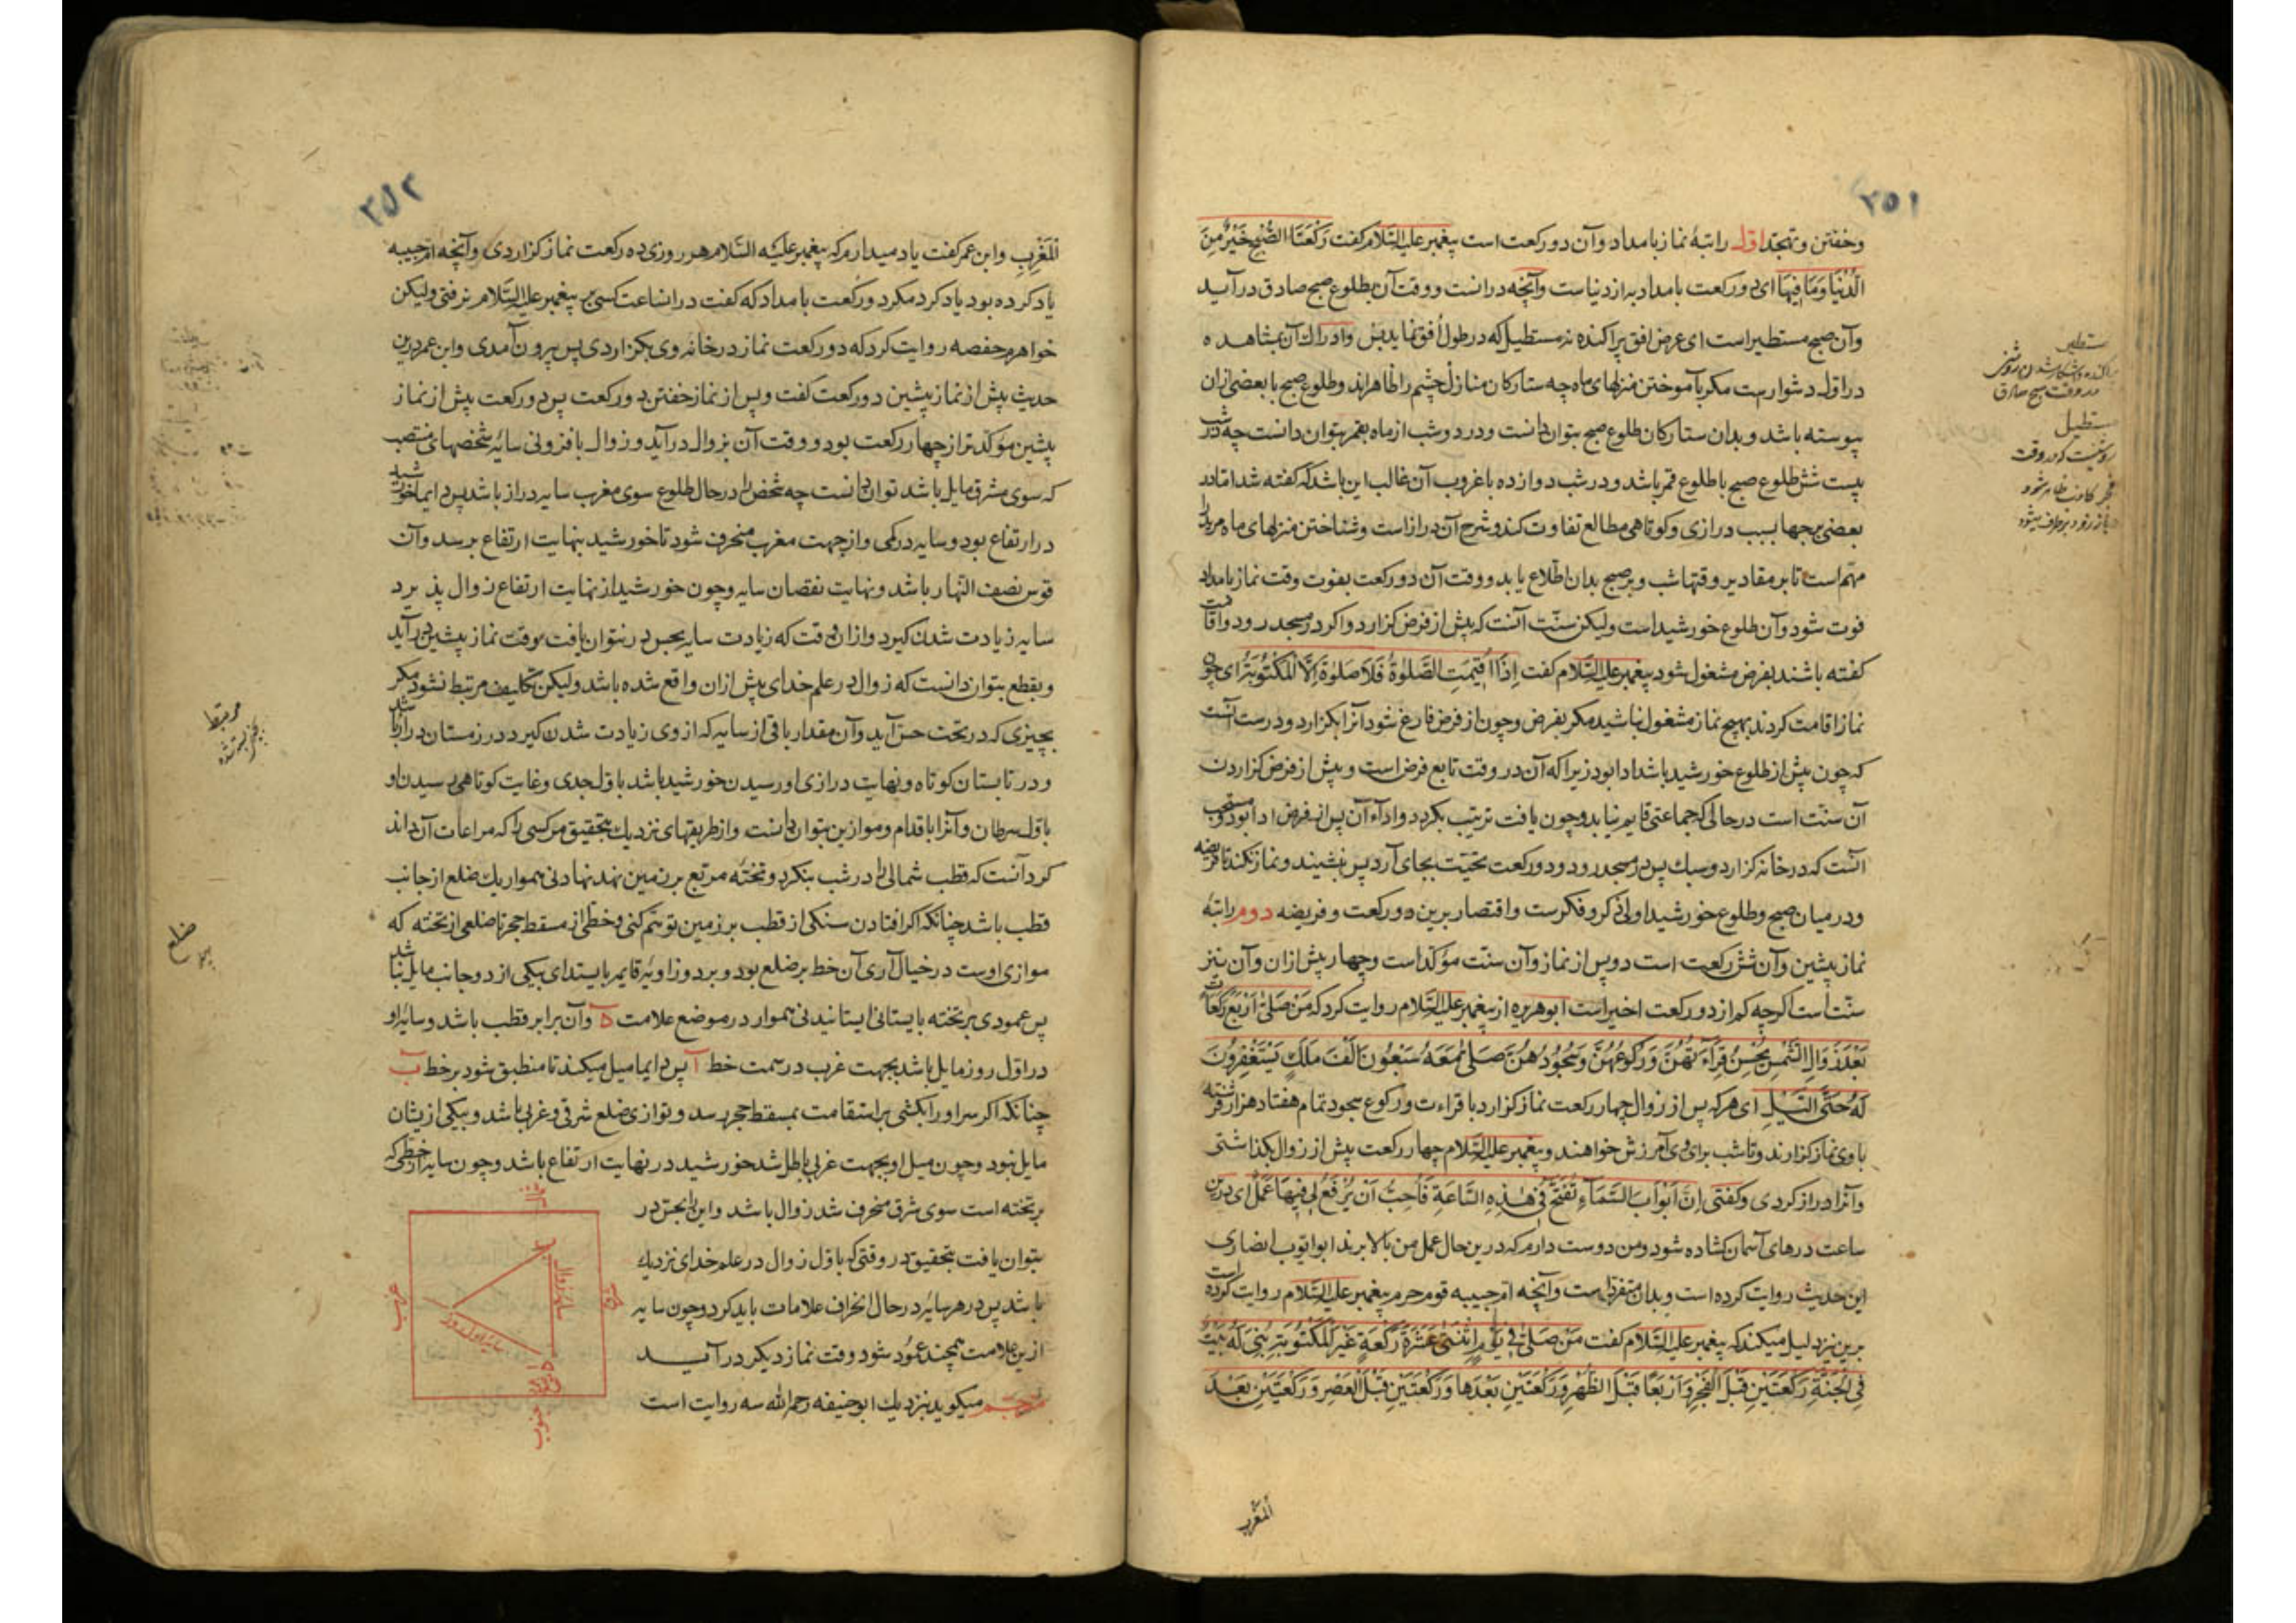 ۳۵۱
وخفتن وتهجد اول راتبهٔ نماز بامداد وآن دو رکعت است پیغمبر علیه السّلام کفت رَکْعَتَا الصُّبْحِ خَیْرٌ مِنَ
الدُّنْیَا وَمَا فِیهَا ای دو رکعت بامداد به از دنیاست وآنچه درانست ووقت آن بطلوع صبح صادق درآید
وآن صبح مستطیر است ای عرض افق پراکنده نه مستطیل که در طول اُفق نماید پس وادراك آن بمشاهده
در اوّل دشوارست مکر بآموختن منزلهای ماه چه ستارکان منازل چشم را ظاهراند وطلوع صبح با بعضی ازان
پیوسته باشد وبدان ستارکان طلوع صبح بتوان دانست ودر دو شب از ماه بقمر بتوان دانست چه در شب
بیست شش طلوع صبح با طلوع قمر باشد ودر شب دوازده با غروب آن غالب این باشد که کفته شد امّا در
بعضی برجها بسبب درازی وکوتاهی مطالع تفاوت کند وشرح آن درازاست وشناختن منزلهای ماه مرید را
مهمّ است تا بر مقادیر وقتها شب وبر صبح بدان اطّلاع یابد ووقت آن دو رکعت بفوت وقت نماز بامداد
فوت شود وآن طلوع خورشیداست ولیکن سنّت آنست که پیش از فرض کزارد واکر در مسجد رود واقامت
کفته باشند بفرض مشغول شود پیغمبر علیه السّلام کفت اِذَا اُقِیمَتِ الصَّلوٰةُ فَلاَ صَلوٰةَ اِلاَّ الْمَکْتُوبَةَ ای چون
نماز اقامت کردند بهیچ نماز مشغول نباشید مکر بفرض وچون از فرض فارغ شود آنرا بکزارد ودرست آنست
که چون پیش از طلوع خورشید باشد ادا بود زیرا که آن در وقت تابع فرض است وپیش از فرض کزاردن
آن سنّت است در حالی که جماعتی قایم نیابد وچون یافت ترتیب بکردد واداء آن پس از فرض ادا بود ومستحب
آنست که در خانه کزارد وسبك پس در مسجد رود ودو رکعت تحیّت بجای آرد پس بنشیند ونماز نکند تا فریضه
ودر میان صبح وطلوع خورشید اولی ذکر وفکرست واقتصار برین دو رکعت وفریضه دوم راتبهٔ
نماز پیشین وآن شش رکعت است دو پس از نماز وآن سنّت مؤکّد است وچهار پیش ازان وآن نیز
سنّت است اکرچه کم از دو رکعت اخیر است ابوهریره از پیغمبر علیه السّلام روایت کرد که مَنْ صَلّیٰ اَرْبَعَ رَکَعَاتٍ
بَعْدَ زَوَالِ الشَّمْسِ یُحْسِنُ قِرَاءَتَهُنَّ وَرُکُوعَهُنَّ وَسُجُودَهُنَّ صَلّیٰ مَعَهُ سَبْعُونَ اَلْفَ مَلَكٍ یَسْتَغْفِرُونَ
لَهُ حَتَّی اللَّیْلِ ای هر که پس از زوال چهار رکعت نماز کزارد با قراءت ورکوع سجود تمام هفتاد هزار فرشته
با وی نماز کزارند وتا شب برای وی آمرزش خواهند وپیغمبر علیه السّلام چهار رکعت پیش از زوال بکذاشتی
وآنرا دراز کردی وکفتی اِنَّ اَبْوَابَ السَّمَاءِ تُفْتَحُ فِی هٰذِهِ السَّاعَةِ فَاُحِبُّ اَنْ یُرْفَعَ لِی فِیهَا عَمَلٌ ای درین
ساعت درهای آسمان کشاده شود ومن دوست دارم که درین حال عمل من بالا برند ابوایوب انصاری
این حدیث روایت کرده است وبدان متفرّد است وآنچه امّ حبیبه قوم حرم پیغمبر علیه السّلام روایت کرده است
برین نیز دلیل میکند که پیغمبر علیه السّلام کفت مَنْ صَلّیٰ فِی یَوْمٍ اِثْنَتَیْ عَشْرَةَ رَکْعَةً غَیْرَ الْمَکْتُوبَةِ بُنِیَ لَهُ بَیْتٌ
فِی الْجَنَّةِ رَکْعَتَیْنِ قَبْلَ الْفَجْرِ وَاَرْبَعًا قَبْلَ الظُّهْرِ وَرَکْعَتَیْنِ بَعْدَهَا وَرَکْعَتَیْنِ قَبْلَ الْعَصْرِ وَرَکْعَتَیْنِ بَعْدَ
المغرب
مستطیر
در وقت صبح صادق
مستطیل
روشنیست که در وقت
فجر کاذب ظاهر شود
باز زود برطرف میشود
۳۵۲
اَلْمَغْرِبِ وابن عمر کفت یاد میدارم که پیغمبر علیه السّلام هر روزی ده رکعت نماز کزاردی وآنچه امّ حبیبه
یاد کرده بود یاد کرد مکر دو رکعت بامداد که کفت دران ساعت کسی بر پیغمبر علیه السّلام نرفتی ولیکن
خواهرم حفصه روایت کرد که دو رکعت نماز در خانه وی بکزاردی پس بیرون آمدی وابن عمر درین
حدیث پیش از نماز پیشین دو رکعت کفت وپس از نماز خفتن دو رکعت پس دو رکعت پیش از نماز
پیشین مؤکّدتر از چهار رکعت بود ووقت آن بزوال درآید وزوال بافزونی سایهٔ شخصهای منتصب
که سوی مشرق مایل باشد توان دانست چه شخص را در حال طلوع سوی مغرب سایه دراز باشد پس دایما خورشید
در ارتفاع بود وسایه در کمی واز جهت مغرب منحرف شود تا خورشید بنهایت ارتفاع برسد وآن
قوس نصف النّهار باشد ونهایت نقصان سایه وچون خورشید از نهایت ارتفاع زوال پذیرد
سایه زیادت شدن کیرد وازان وقت که زیادت سایه بحس در نتوان یافت وقت نماز پیشین درآید
وبقطع بتوان دانست که زوال در علم خدای پیش ازان واقع شده باشد ولیکن تکالیف مرتبط نشود مکر
بچیزی که در تحت حس آید وآن مقدار باقی از سایه که از وی زیادت شدن کیرد در زمستان دراز باشد
ودر تابستان کوتاه ونهایت درازی او رسیدن خورشید باشد باوّل جدی وغایت کوتاهی رسیدن او
باوّل سرطان وآنرا باقدام وموازین بتوان دانست واز طریقهای نزدیك بتحقیق مر کسی را که مراعات آن داند
کرد آنست که قطب شمالی را در شب بنکرد وتخته مربّع بر زمین نهد نهادنی هموار یك ضلع از جانب
قطب باشد چنانکه اکر افتادن سنکی از قطب بر زمین توهّم کنی وخطّی از مسقط حجر تا ضلعی از تخته که
موازی اوست در خیال آری آن خط بر ضلع بود وبر دو زاویهٔ قایمه بایستد ای بیکی از دو جانب مایل نباشد
پس عمودی بر تخته بایستانی ایستانیدنی هموار در موضع علامت ه وآن برابر قطب باشد وسایهٔ او
در اوّل روز مایل باشد بجهت غرب در سمت خط آ پس دایما میل میکند تا منطبق شود بر خط ب
چنانکه اکر سر او را بکشی بر استقامت بمسقط حجر رسد وتوازی ضلع شرقی وغربی باشد وبیکی ازیشان
مایل نبود وچون میل او بجهت غربی باطل شد خورشید در نهایت ارتفاع باشد وچون سایه از خطّی که
بر تخته است سوی شرق منحرف شد زوال باشد واین را بحس در
بتوان یافت بتحقیق در وقتی که باوّل زوال در علم خدای نزدیك
باشد پس در هر سایهٔ در حال انحراف علامات باید کرد وچون سایه
ازین علامت همچند عمود شود وقت نماز دیکر درآید
مترجم میکوید بنزدیك ابوحنیفه رحمه الله سه روایت است
شمال
سایهٔ زوال
سایهٔ اول روز
جنوب
ضلع